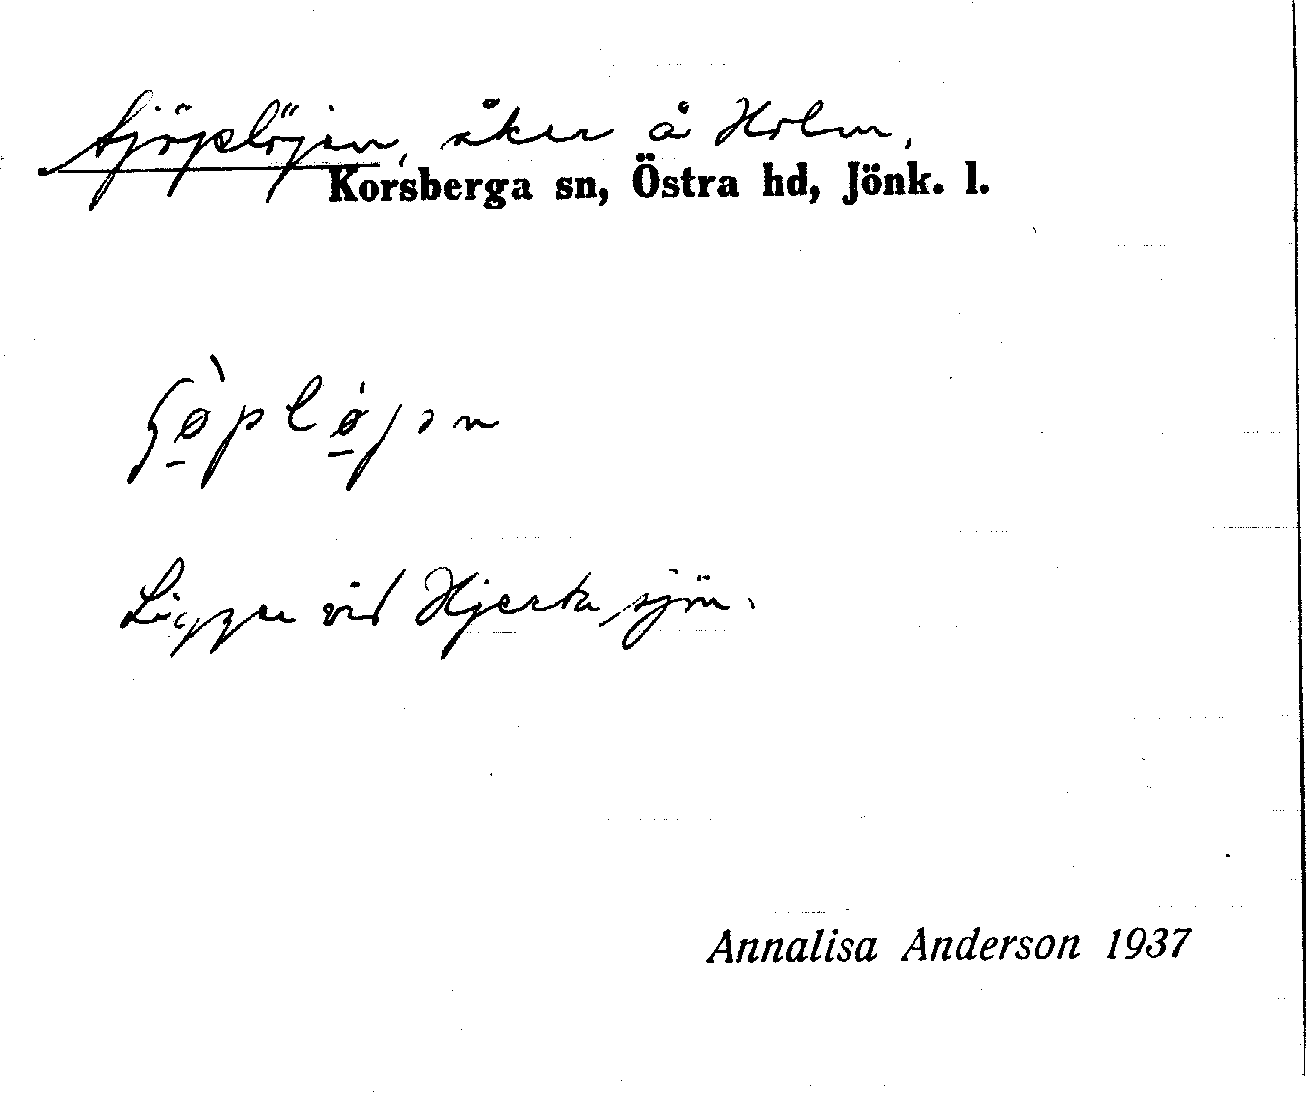 Sjöplöjen, åker å Holm,
Korsberga sn, Östra hd, Jönk. l.
Ligger vid Hjertasjön.
Annalisa Anderson 1937